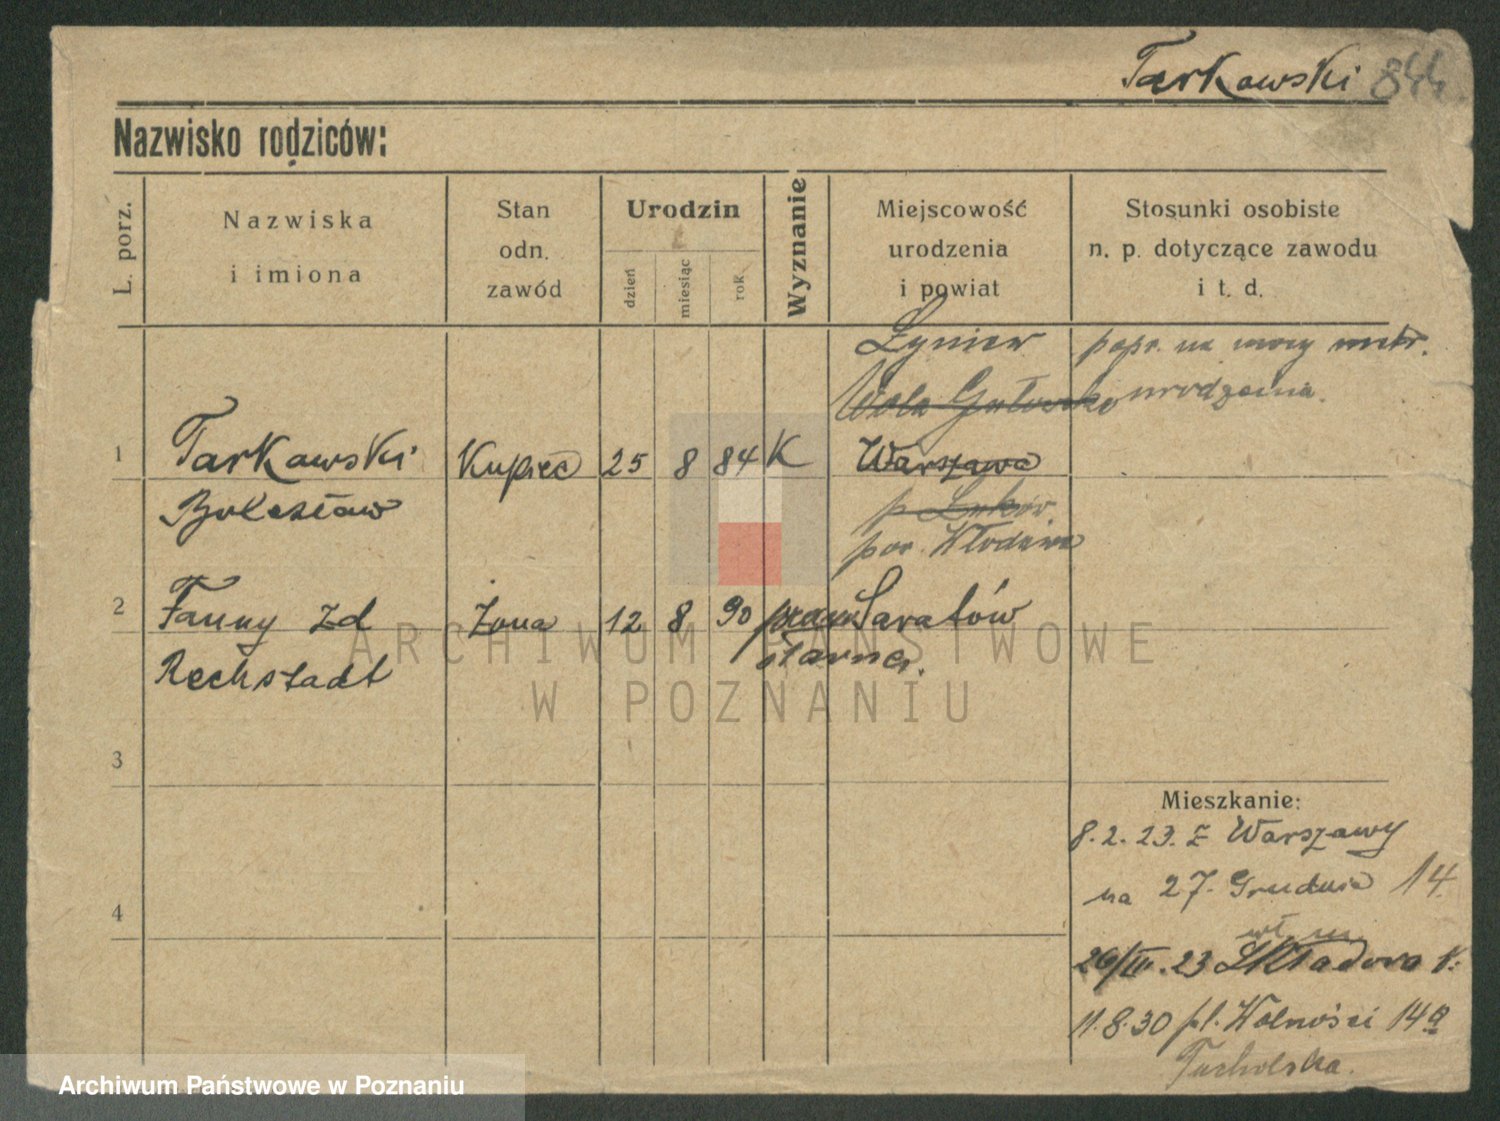 Tarkowski 844
Nazwisko rodziców:
L. porz.
Nazwiska
i imiona
Stan
odn.
zawód
Urodzin
dzień
miesiąc
rok
Wyznanie
Miejscowość
urodzenia
i powiat
Stosunki osobiste
n. p. dotyczące zawodu
i t. d.
Łyniew
popr. na mocy metr.
urodzenia.
Wola Gułowska
1 Tarkowski Kupiec 25 8 84 K Warszawa
Bolesław
p Łuków
pow. Włodawa
2 Fanny zd Żona 12 8 90 Saratów
Rechstadt
3
4
Mieszkanie:
8.2.23. z Warszawy
na 27. Grudnia 14.
26/III.23 Składowa
11.8.30 pl. Wolności 14a
Tucholska.
ARCHIWUM PAŃSTWOWE
W POZNANIU
Archiwum Państwowe w Poznaniu